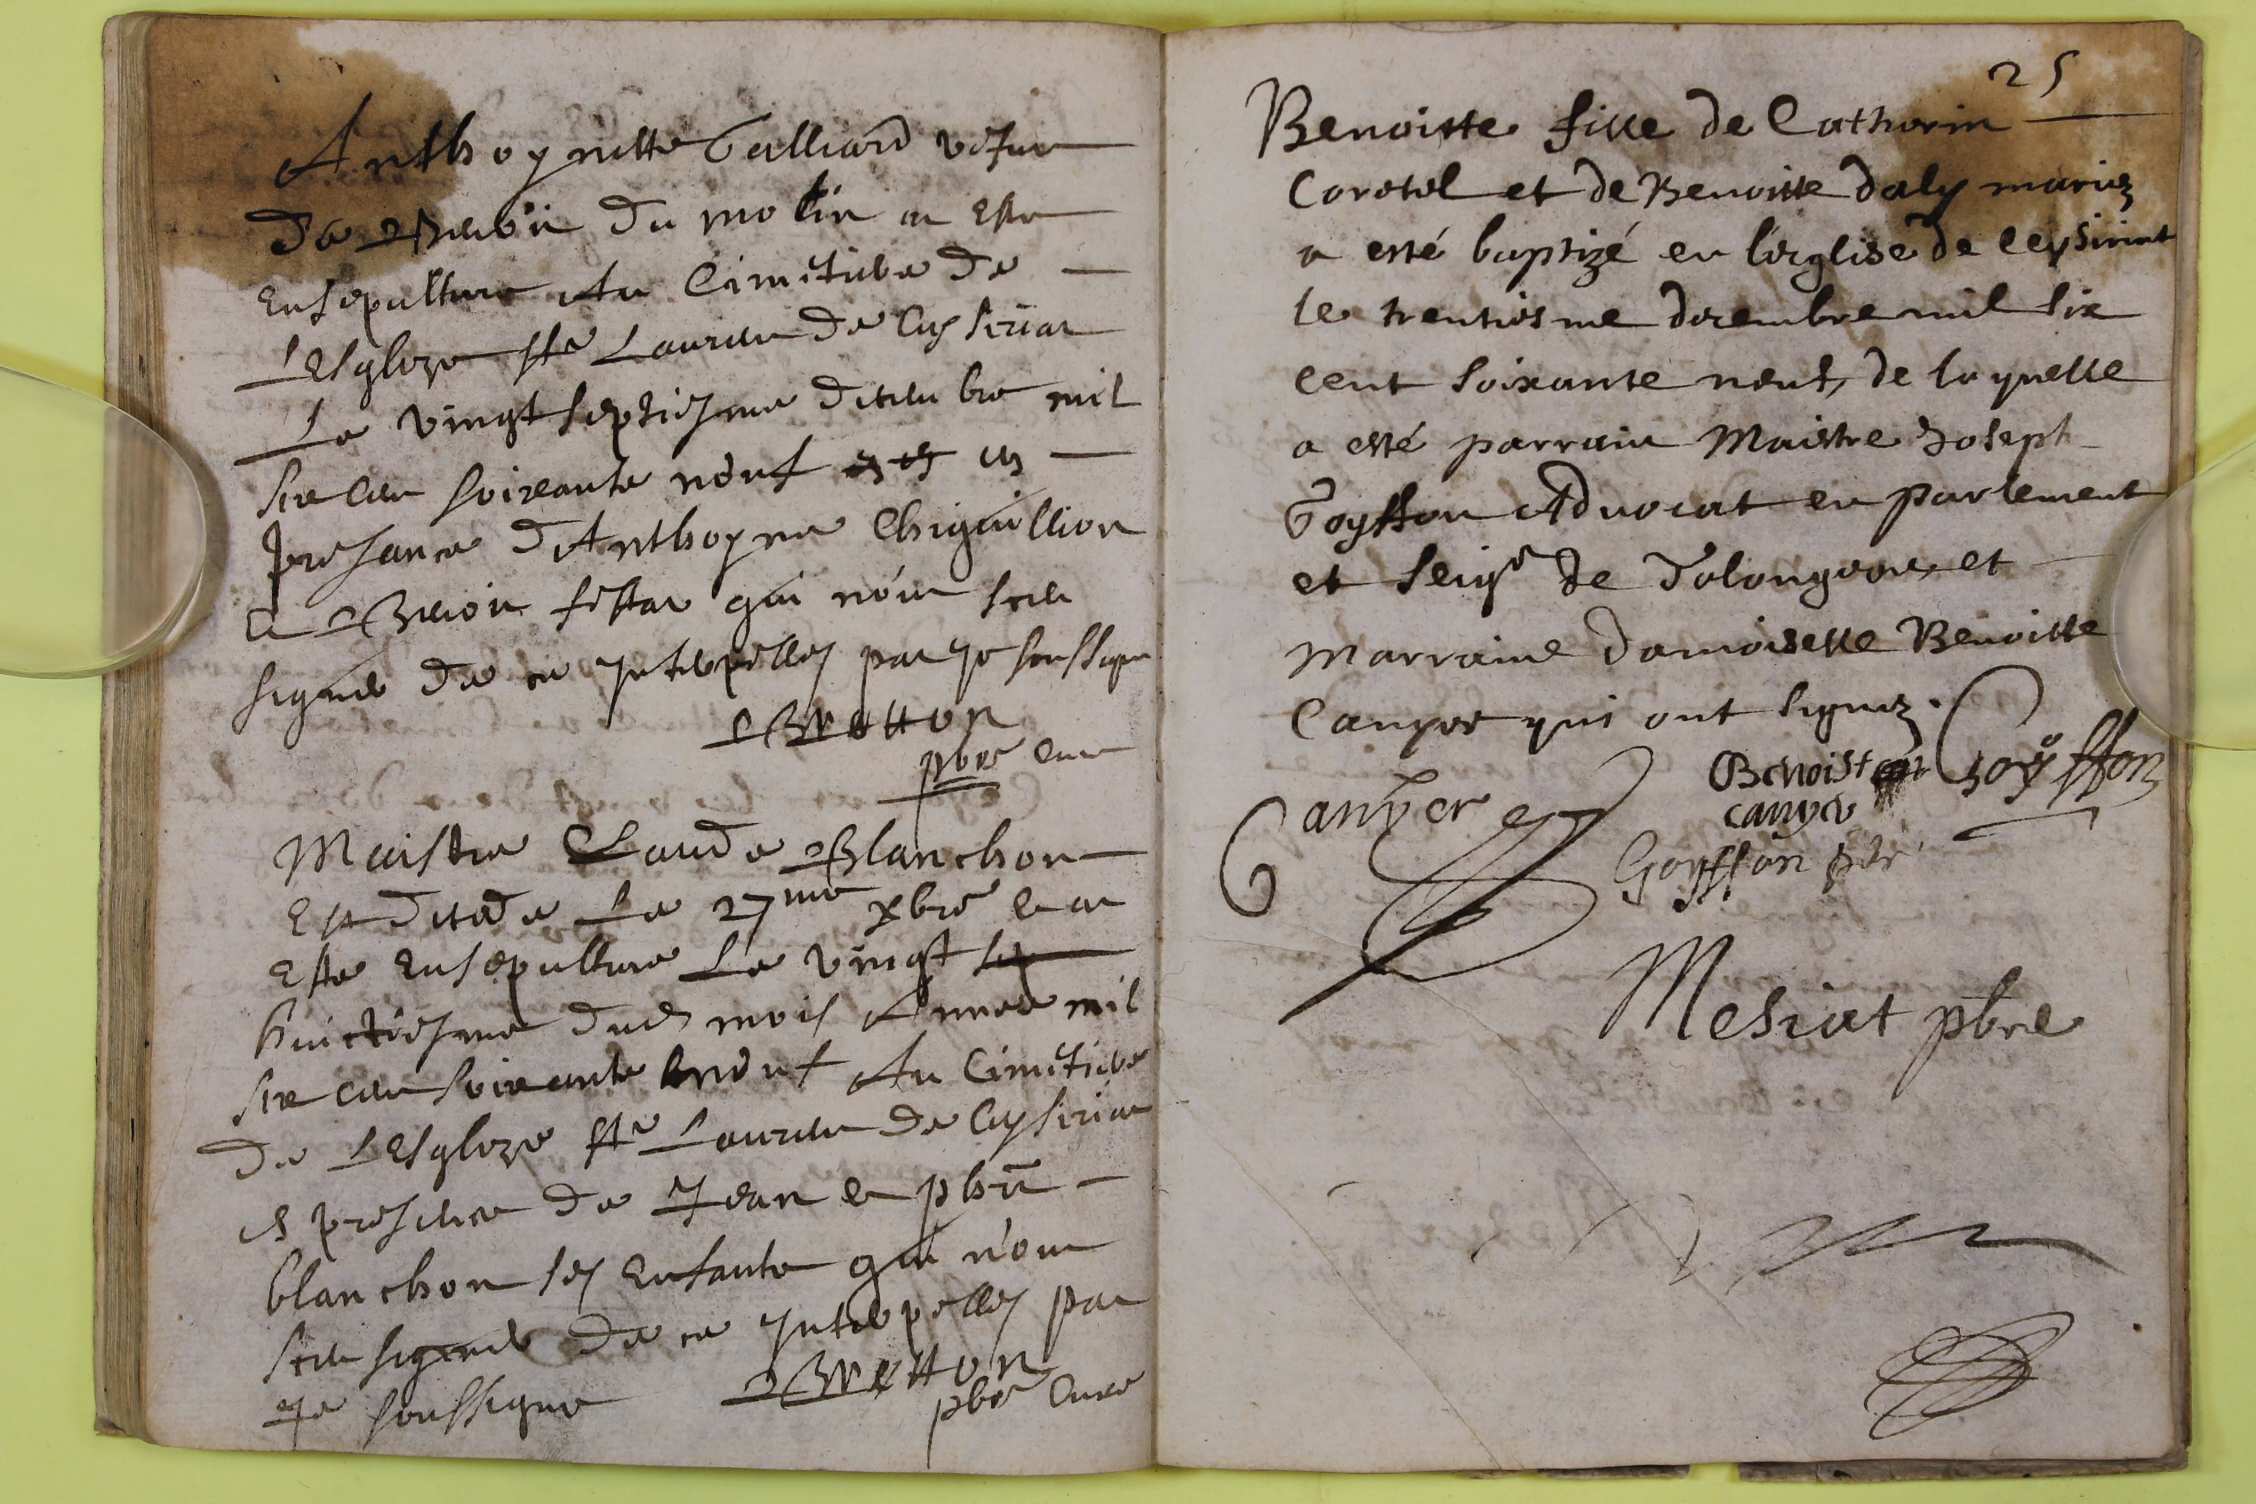 Anthoynette Galliard vefue
de Benoit du molin a este
Ensepulture Au Cimetiere de
L'Esglize ste Lauran de Ceysiria
Le vingt septiesme decembre mil
six cen soixante neuf en
presance d'Anthoyne Chiguillion
e Benoit qui n'ont sceu
signer de ce Interpelles par Je soussigne
Bretton
pbre Cure
Maistre Claude Blanchon
Est decede Le 27me xbre e a
Este Ensepulture Le vingt
huictiesme dud mois Annee mil
six cen soixante neuf Au Cimetiere
de L'Esglize ste Lauran de Ceysiria
es presence de Jean e phi
blanchon ses Enfants qui n'ont
sceu signer de ce Interpelles par
Je soussigne Bretton
pbre Cure
25
Benoitte fille de Catherin
Coretel et de Benoitte daly mariez
a esté baptizé en l'eglise de Ceysiriat
le trentiesme decembre mil six
cent soixante neuf, de laquelle
a esté parrain Maistre Joseph
Goyffon Advocat en parlement
et seigr de Tolongeon, et
marraine damoiselle Benoitte
Canyer qui ont signez.
Benoiste Goyffon
Canyer canyer
Goyffon
Mesiat pbre